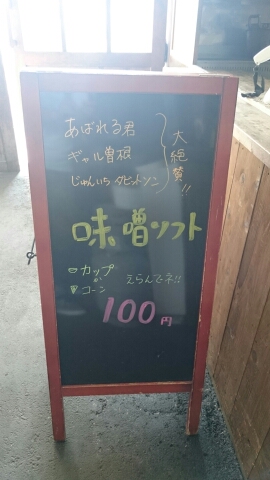 あばれる君
ギャル曽根
じゅんいちダビットソン
大絶賛!!
味噌ソフト
カップ
か
コーン
えらんでネ!!
100円